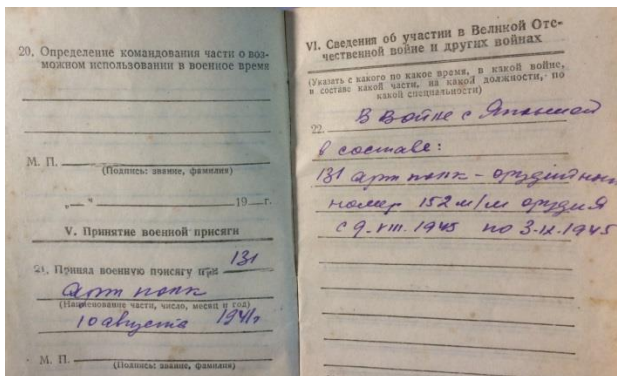 20. Определение командования части о воз-
можном использовании в военное время
М. П.
(Подпись: звание, фамилия)
„ — “ 19 г.
V. Принятие военной присяги
21. Принял военную присягу при 131
арт полк
(Наименование части, число, месяц и год)
10 августа 1941г
М. П.
(Подпись: звание, фамилия)
VI. Сведения об участии в Великой Оте-
чественной войне и других войнах
(Указать с какого по какое время, в какой войне,
в составе какой части, на какой должности, по
какой специальности)
22. В войне с Японией
в составе:
131 арт полк – орудийный
номер 152 м/м орудия
с 9.VIII.1945 по 3.IX.1945